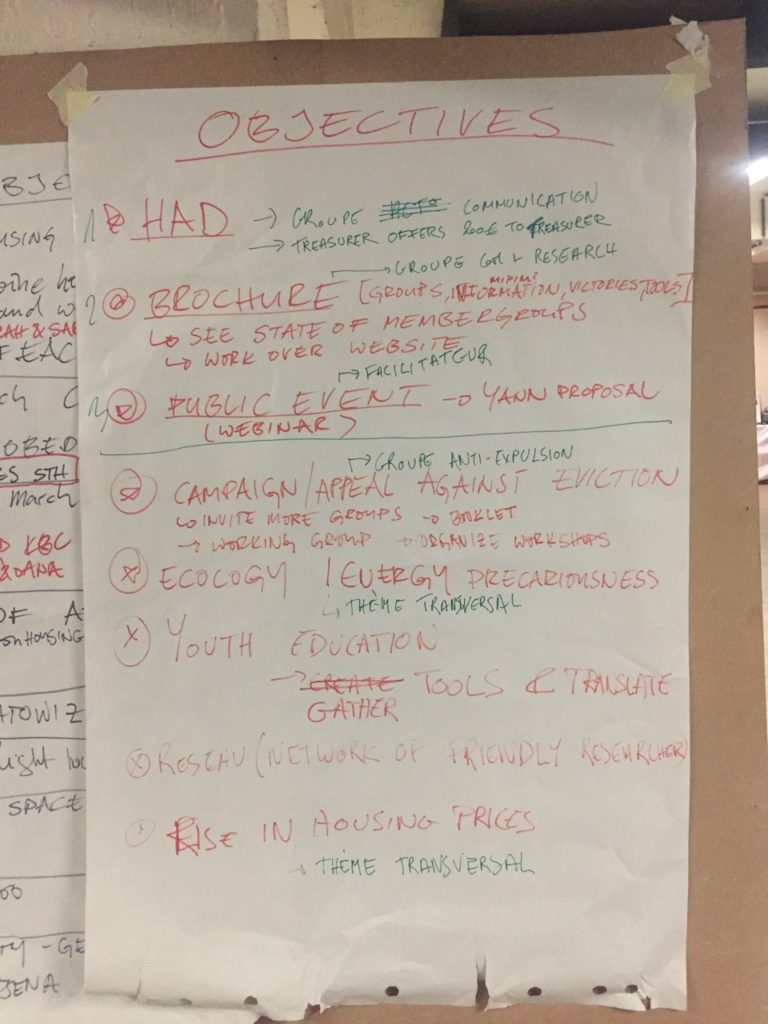 OBJECTIVES
1 HAD → GROUPE COMMUNICATION
→ TREASURER OFFERS 200€ TO TREASURER
→ GROUPE COM + RESEARCH
2 BROCHURE [GROUPS, INFORMATION, VICTORIES, TOOLS]
↳ SEE STATE OF MEMBERGROUPS
↳ WORK OVER WEBSITE
→ FACILITATEUR
3 PUBLIC EVENT → YANN PROPOSAL
(WEBINAR)
→ GROUPE ANTI-EXPULSION
CAMPAIGN/APPEAL AGAINST EVICTION
↳ INVITE MORE GROUPS → BOOKLET
→ WORKING GROUP → ORGANIZE WORKSHOPS
ECOLOGY / ENERGY PRECARIOUSNESS
↳ THÈME TRANSVERSAL
YOUTH EDUCATION
→ CREATE TOOLS & TRANSLATE
GATHER
RESEAU (NETWORK OF FRIENDLY RESEARCHER)
RISE IN HOUSING PRICES
→ THÈME TRANSVERSAL
BJE
USING
and w
F EAC
ch C
OBED
ES 5TH
March
KBC
& DANA
OF A
on HOUSING
ATOWIZ
light
SPACE
TY - GE
JENA